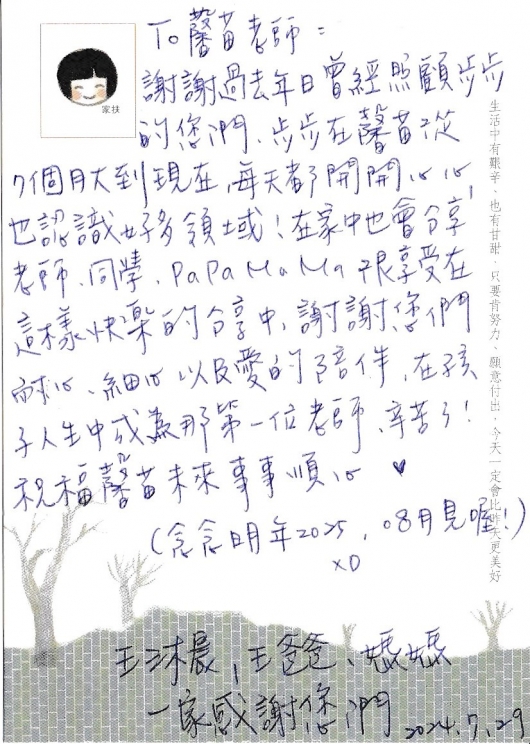 To 馨苗老師：
謝謝過去年日曾經照顧步步
的您們、步步在馨苗從
7個月大到現在,每天都開開心心,
也認識好多領域！在家中也會分享
老師、同學、PaPa MaMa 很享受在
這樣快樂的分享中,謝謝您們
耐心、細心以及愛的陪伴,在孩
子人生中成為那第一位老師、辛苦了！
祝福馨苗未來事事順心 ♥
(念念明年2025,08月見喔！)
XD
王沐晨,王爸爸、媽媽
一家感謝您們 2024.7.29
家扶
生活中有艱辛，也有甘甜，只要肯努力、願意付出，今天一定會比昨天更美好